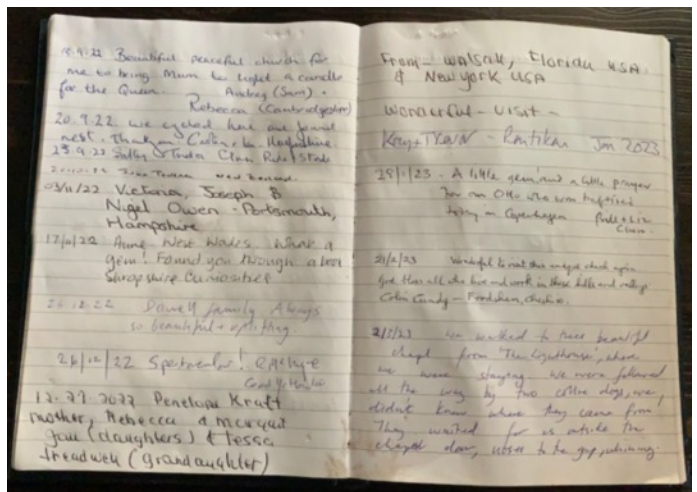 18.9.22 Beautiful peaceful church for
me to bring Mum to light a candle
for the Queen. Audrey (Sam) +
Rebecca (Cambridgeshire)
20.9.22 we cycled here and found
rest. Thankyou.
23.9.22 Sally
New Zealand
03/11/22 Victoria, Joseph B
Nigel Owen - Portsmouth,
Hampshire
17/11/22 Anne West Wales. What a
gem! Found you through a book
Shropshire Curiosities
26.12.22 Dowell family Always
so beautiful + uplifting.
26/12/22 Spectacular!
12.27.2022 Penelope Kraft
mother, Rebecca & Margaret
(daughters) & Tessa
Treadwell (grandaughter)
From - Walsall, Florida USA.
& New York USA
Wonderful - Visit -
Jan 2023
28/1/23 - A little gem, and a little prayer
for our Otto who was baptised
today in Copenhagen
21/2/23 Wonderful to visit this unique church again
give thanks all who live and work in these hills and valleys
Colin - Frodsham, Cheshire.
2/3/23 We walked to this beautiful
chapel from 'The Lighthouse', where
we were staying. We were followed
all the way by two collie dogs, we
didn't know where they came from!
They waited for us outside the
chapel door, noses to the gap, whining.